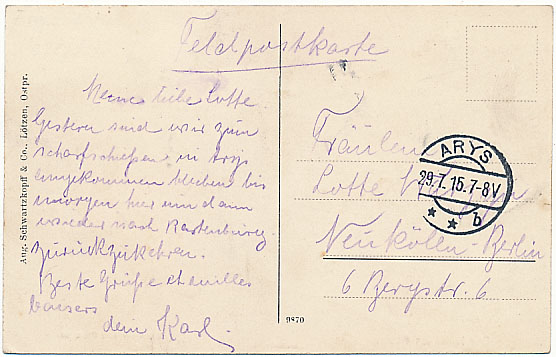 Feldpostkarte
Meine liebe Lotte.
Gestern sind wir zum
scharfschießen in Arys
eingekommen bleiben bis
morgen hier um dann
wieder nach Rastenburg
zurückzukehren.
Beste Grüße et milles
baisers
dein Karl.
Aug. Schwartzkopff & Co., Lötzen, Ostpr.
Fräulein
Lotte
Neukölln-Berlin
6 Bergstr. 6
ARYS
29.7.15.7-8V
* * b
9870